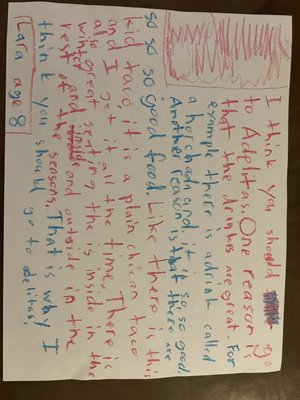 I think you should go
to Adelitas. One reason is
that the drinks are great. For
example there is a drink called
a hochada and it is so so good
Another reason is that there are
so so so good food. Like there is this
kid tard, it is a plain chican taco
and I get it all the time, There is
also great seating the is inside in the
winter and and outside in the
rest of the seasons. That is why I
think you should go to adelitas!
Cara age 8